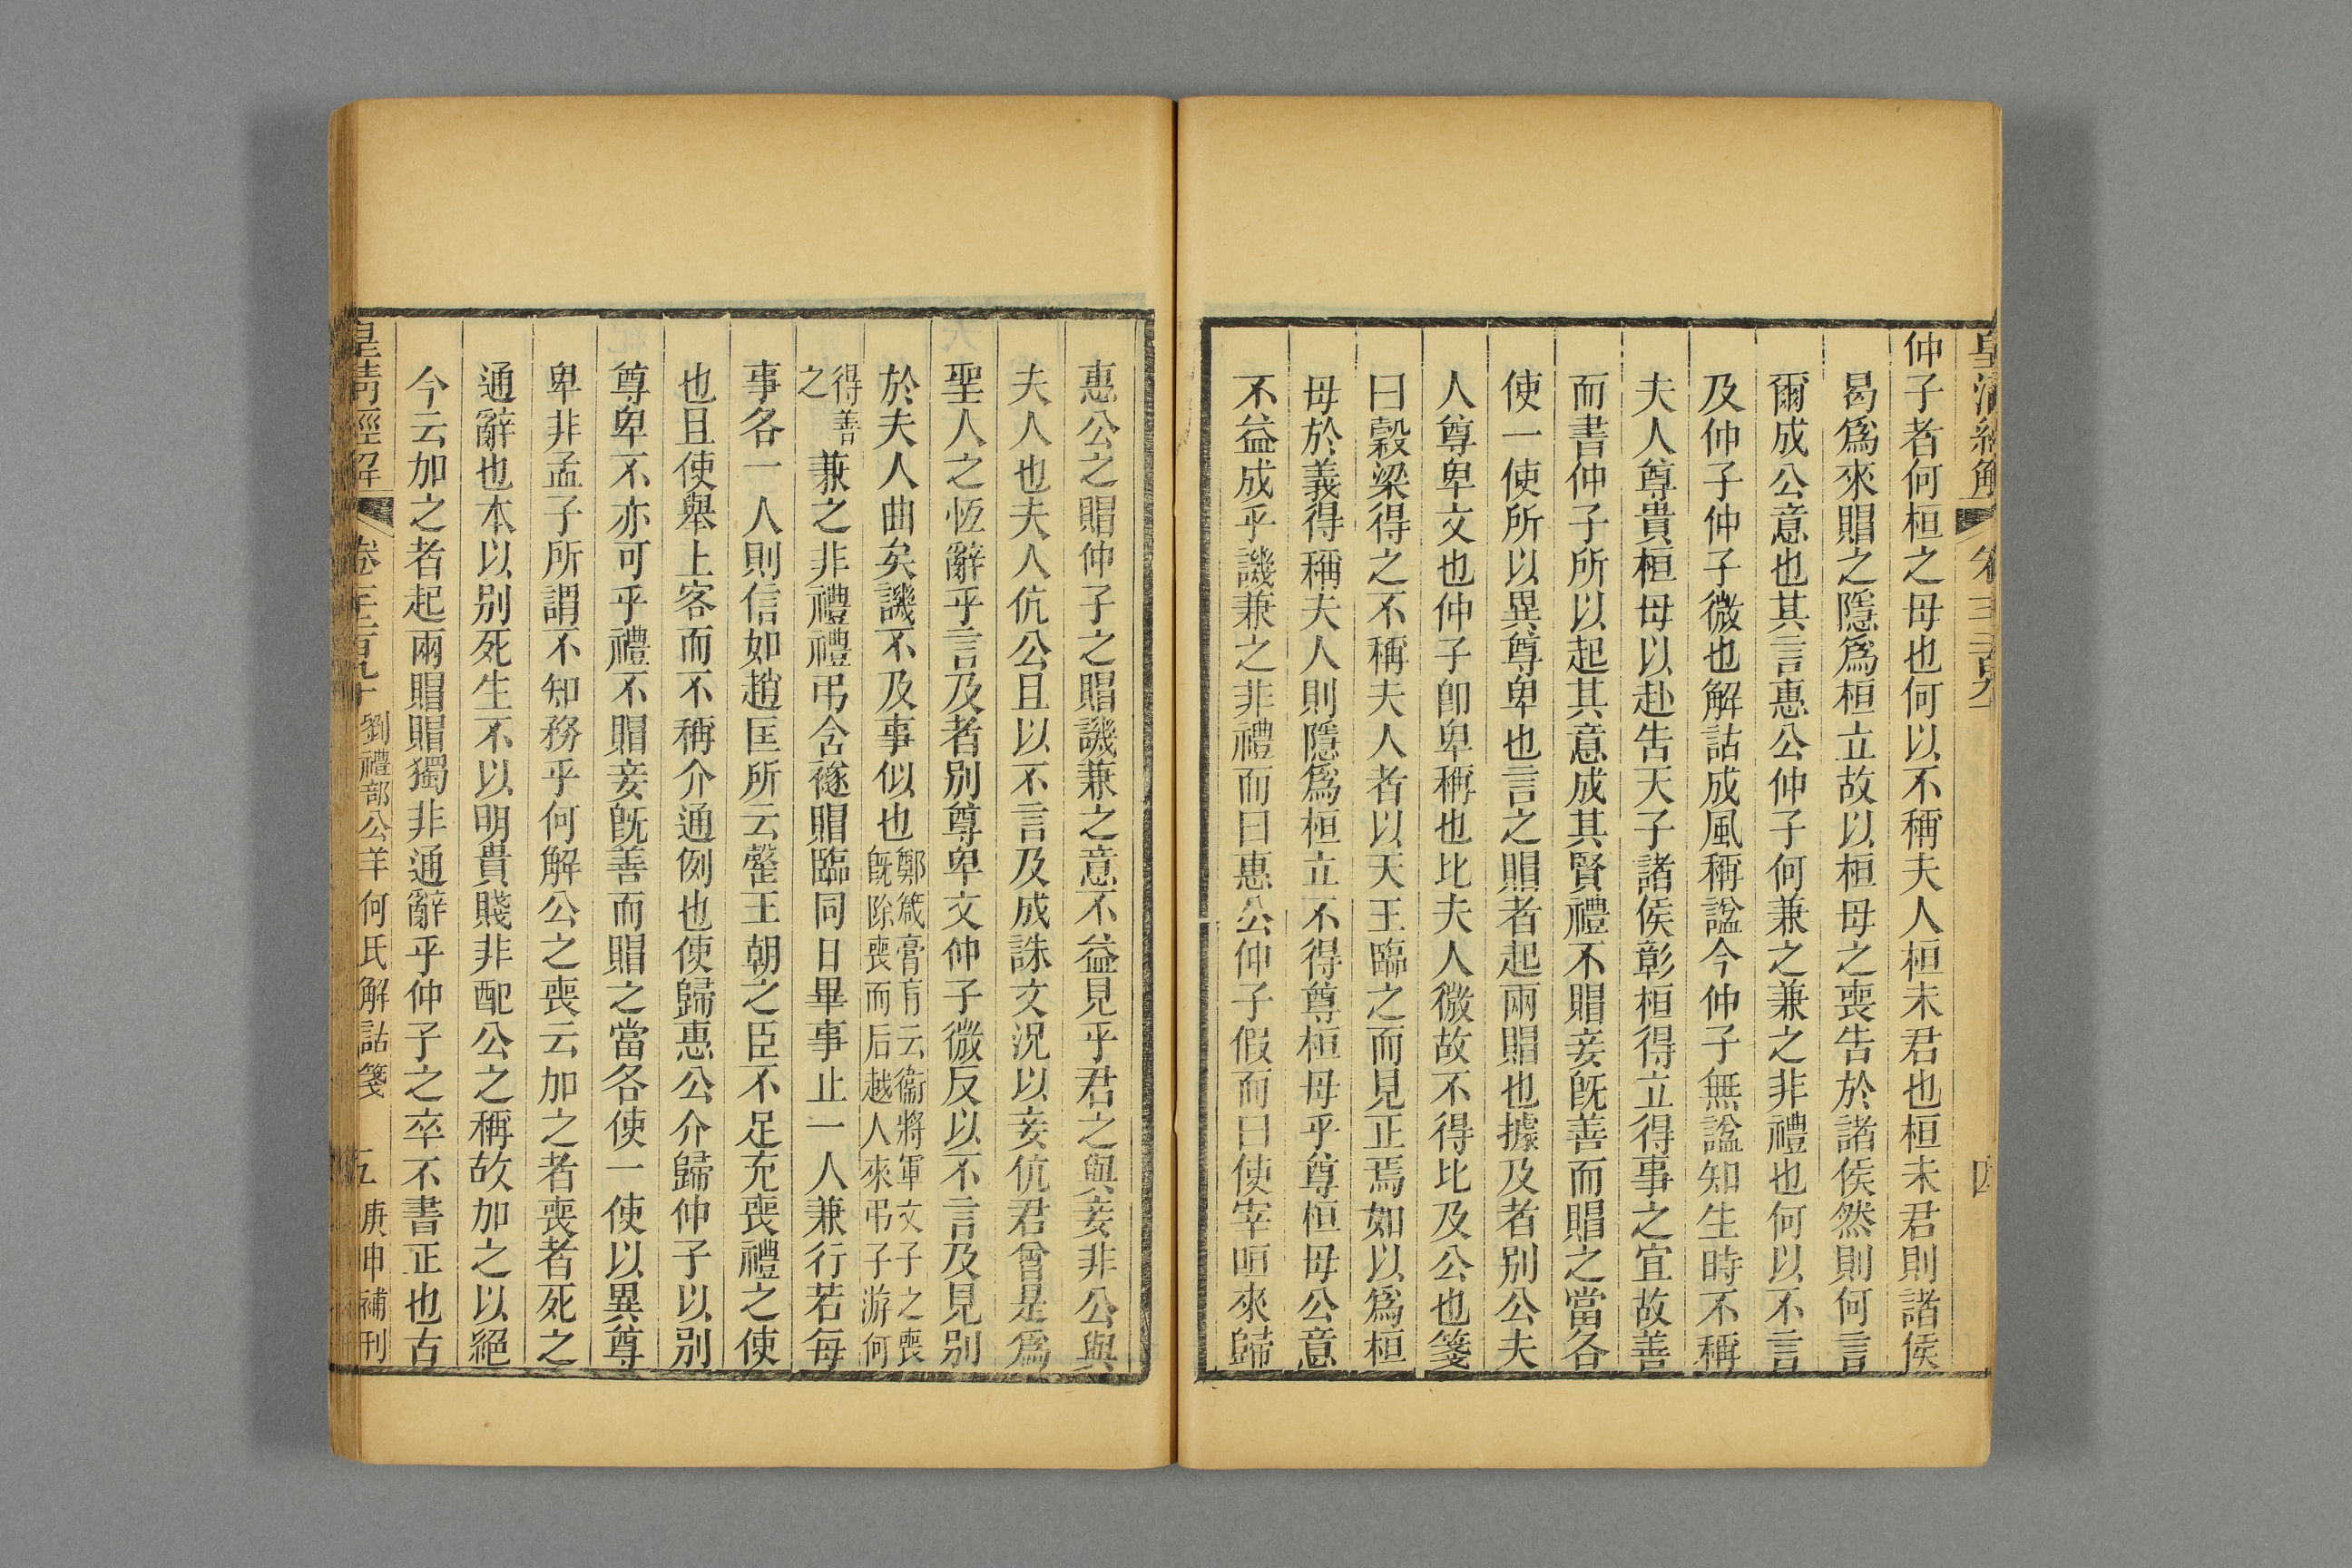 皇清經解 卷千二百九十 四
仲子者何桓之母也何以不稱夫人桓未君也桓未君則諸侯
曷爲來賵之隱爲桓立故以桓母之喪告於諸侯然則何言
爾成公意也其言惠公仲子何兼之兼之非禮也何以不言
及仲子仲子微也解詁成風稱諡今仲子無諡知生時不稱
夫人尊貴桓母以赴告天子諸侯彰桓得立得事之宜故善
而書仲子所以起其意成其賢禮不賵妾旣善而賵之當各
使一使所以異尊卑也言之賵者起兩賵也據及者別公夫
人尊卑文也仲子卽卑稱也比夫人微故不得比及公也箋
曰穀梁得之不稱夫人者以天王臨之而見正焉如以爲桓
母於義得稱夫人則隱爲桓立不得尊桓母乎尊桓母公意
不益成乎譏兼之非禮而曰惠公仲子假而曰使宰咺來歸
惠公之賵仲子之賵譏兼之意不益見乎君之與妾非公與
夫人也夫人伉公且以不言及成誅文況以妾伉君曾是爲
聖人之恆辭乎言及者別尊卑文仲子微反以不言及見別
於夫人曲矣譏不及事似也鄭箴膏肓云衞將軍文子之喪旣除喪而后越人來弔子游何
得善之兼之非禮禮弔含襚賵臨同日畢事止一人兼行若每
事各一人則信如趙匡所云罄王朝之臣不足充喪禮之使
也且使舉上客而不稱介通例也使歸惠公介歸仲子以別
尊卑不亦可乎禮不賵妾旣善而賵之當各使一使以異尊
卑非孟子所謂不知務乎何解公之喪云加之者喪者死之
通辭也本以別死生不以明貴賤非配公之稱故加之以絕
今云加之者起兩賵賵獨非通辭乎仲子之卒不書正也古
皇清經解 卷千二百九十 劉禮部公羊何氏解詁箋 五 庚申補刊